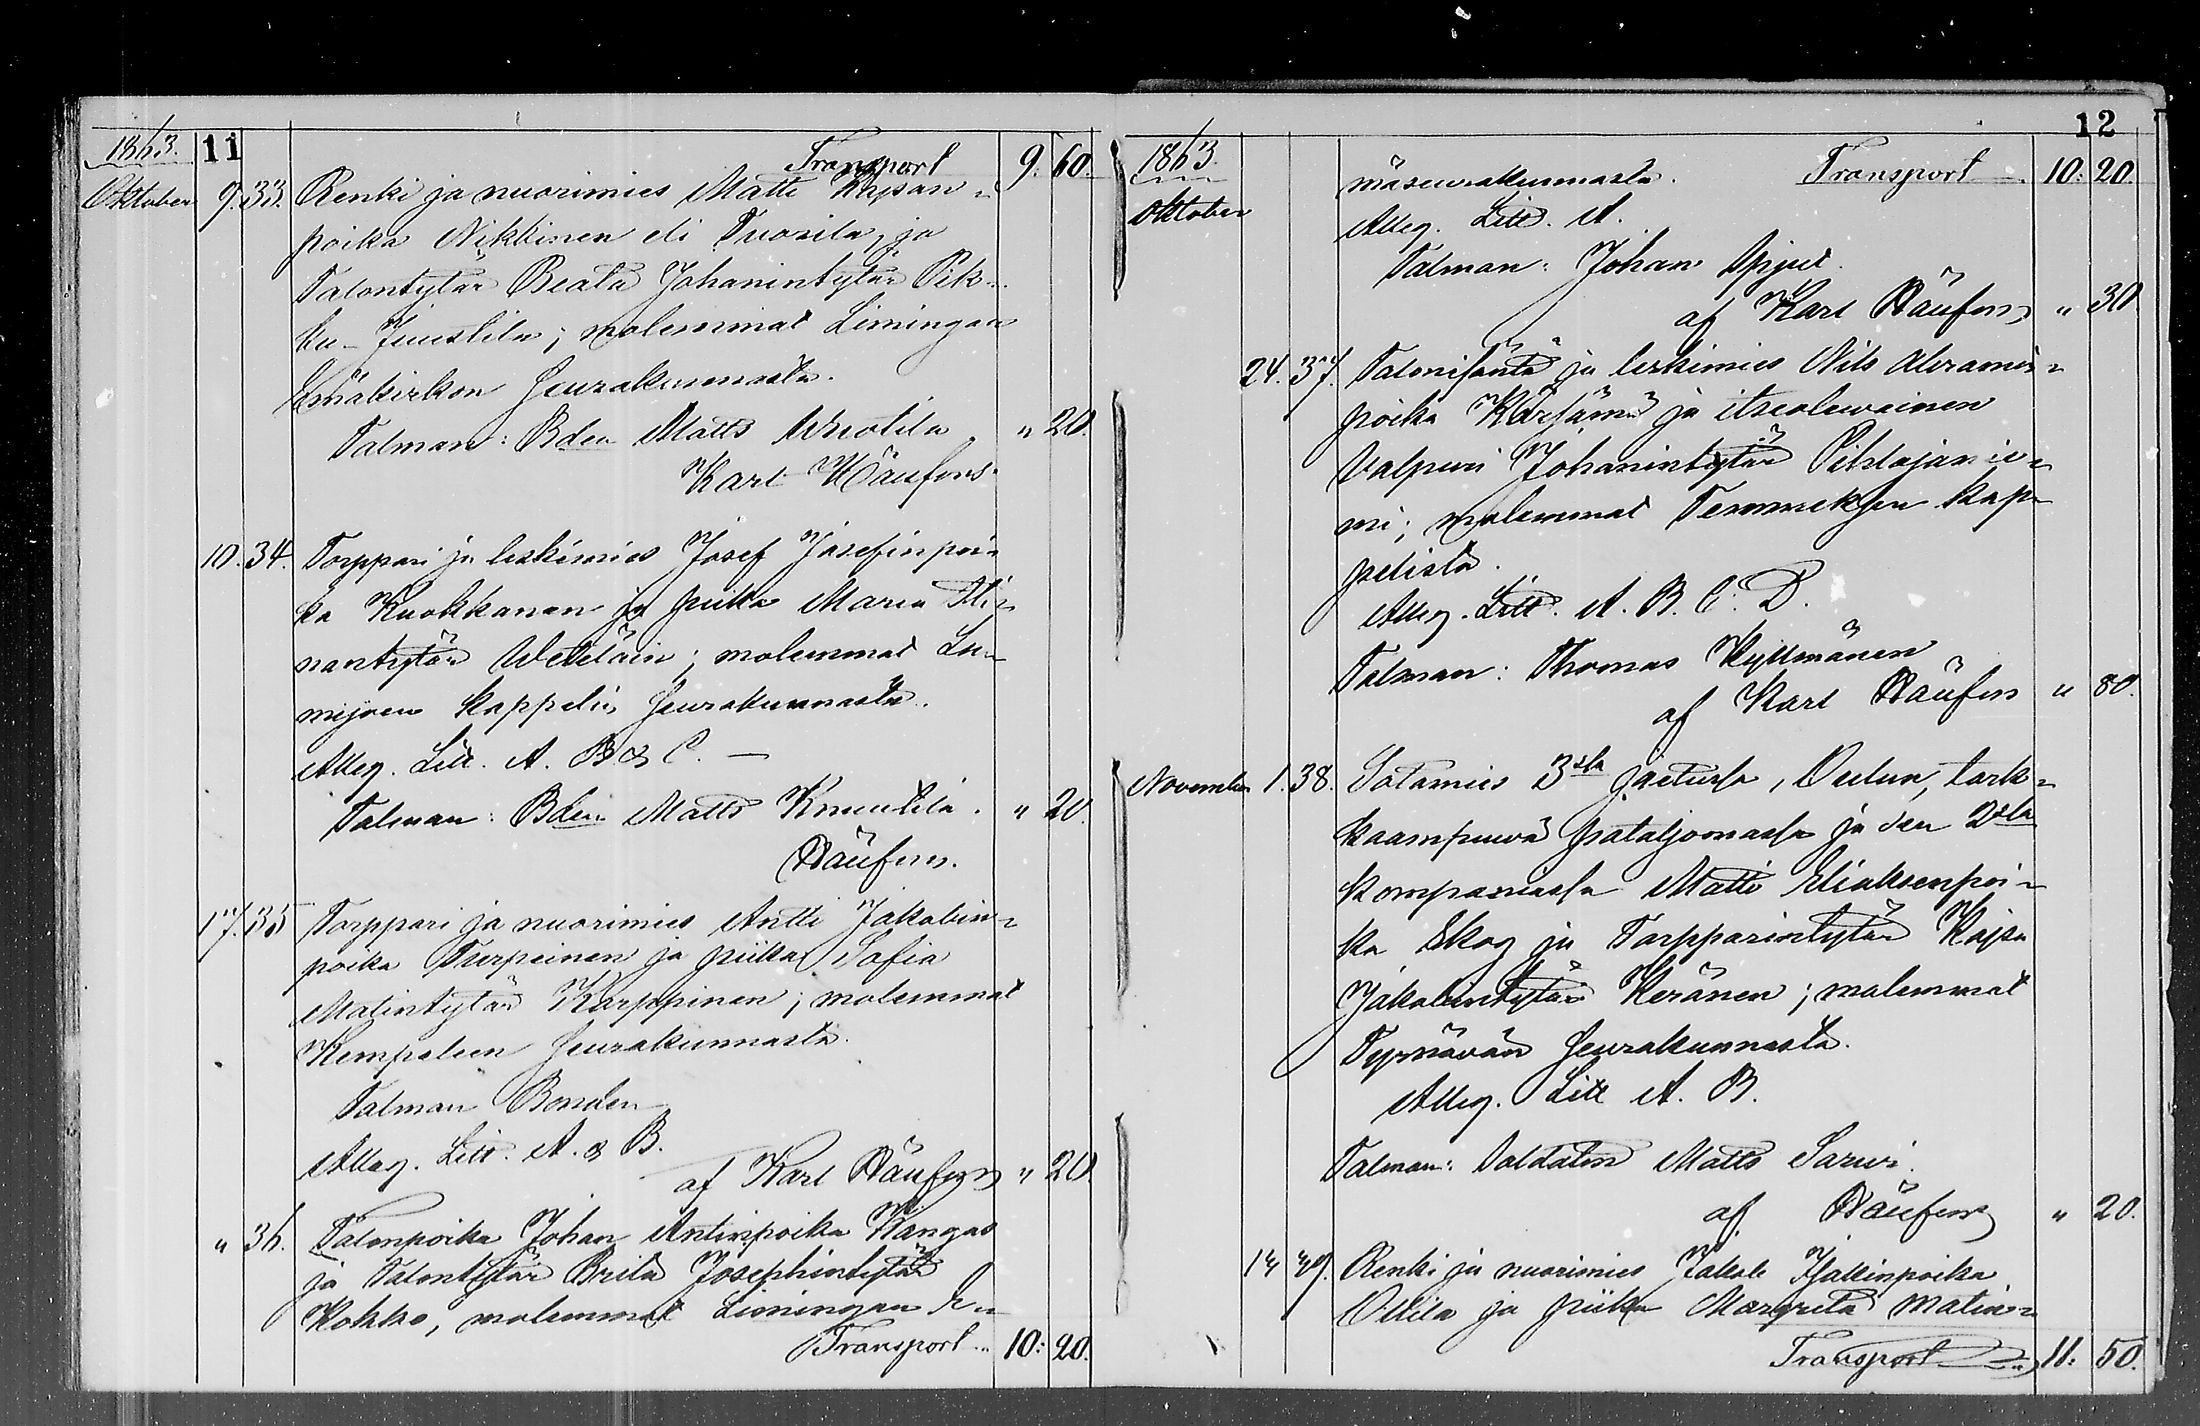 1863. 11 Transport 9. 60.
Oktober 9. 33. Renki ja nuorimies Matti
poika Nikkinen eli Tuorila, ja
Talontytär Beata Johanintytär Pik-
ku-Juustila; molemmat Limingan
Emäkirkon Seurakunnasta.
Talman: Bden Matts " 20.
Karl
10. 34. Torppari ja leskimies Josef Josefinpoi-
ka Kuokkanen ja piika Maria
nantytär; molemmat Lu-
mijoen kappelin Seurakunnasta.
Alleg. Litt. A. B. & C. —
Talman: Bden Matts Knuutila. " 20.
17. 35 Torppari ja nuorimies Antti Jakobin-
poika Turpeinen ja piika Sofia
Matintytär Karppinen; molemmat
Kempeleen Seurakunnasta.
Talman Bonden
Alleg. Litt. A. & B.
af Karl " 20
" 36. Talonpoika Johan Antinpoika Kangas
ja Talontytär Brita Josephintytär
Kokko, molemmat Limingan E-
Transport " 10: 20.
12
1863. mäseurakunnasta. Transport 10: 20.
Oktober Alleg. Litt. A.
Talman: Johan
af Karl " 30
24. 37. Talonisäntä ja leskimies Nils Abramin-
poika Karsämä ja itseolewainen
Valpuri Johanintytär Pihlajanie-
mi; molemmat Temmeksen kap-
pelista.
Alleg. Litt. A. B. C. D.
Talman: Thomas Kyllmänen
af Karl " 80.
November 1. 38. Sotamies 3sta jaetussa, Oulun, tark-
kaampuwa pataljoonassa ja sen 2sta
kompaniassa Matti Eliaksenpoi-
ka Skog ja Torpparintytär Kajsa
Jakobintytär Keränen; molemmat
Tyrnävän Seurakunnasta.
Alleg. Litt A. B.
Talman: Soldaten Matts Sarwi.
af " 20.
14 49. Renki ja nuorimies Jakob Isakinpoika
Ollila ja piika Margreta Matin-
Transport " 11: 50.